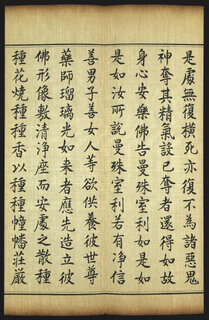 是處無復橫死亦復不為諸惡鬼
神奪其精氣設已奪者還得如故
身心安樂佛告曼殊室利如是如
是如汝所說曼殊室利若有净信
善男子善女人等欲供養彼世尊
藥師瑠璃光如来者應先造立彼
佛形像敷清浄座而安處之散種
種花燒種種香以種種幢幡莊嚴